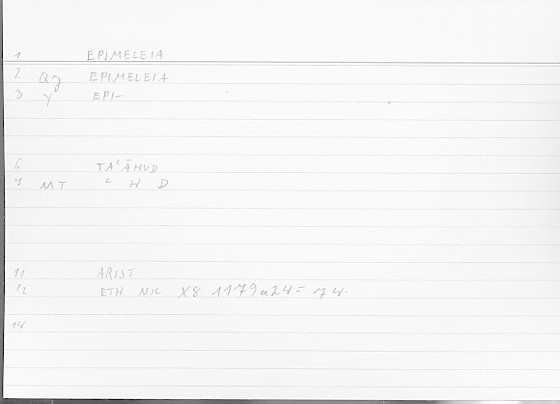 1 EPIMELEIA
2 Qy EPIMELEIA
3 Y EPI-
6 TAʿĀHUD
7 MT ʿ H D
11 ARIST
12 ETH NIC X8 1179a24 =
14